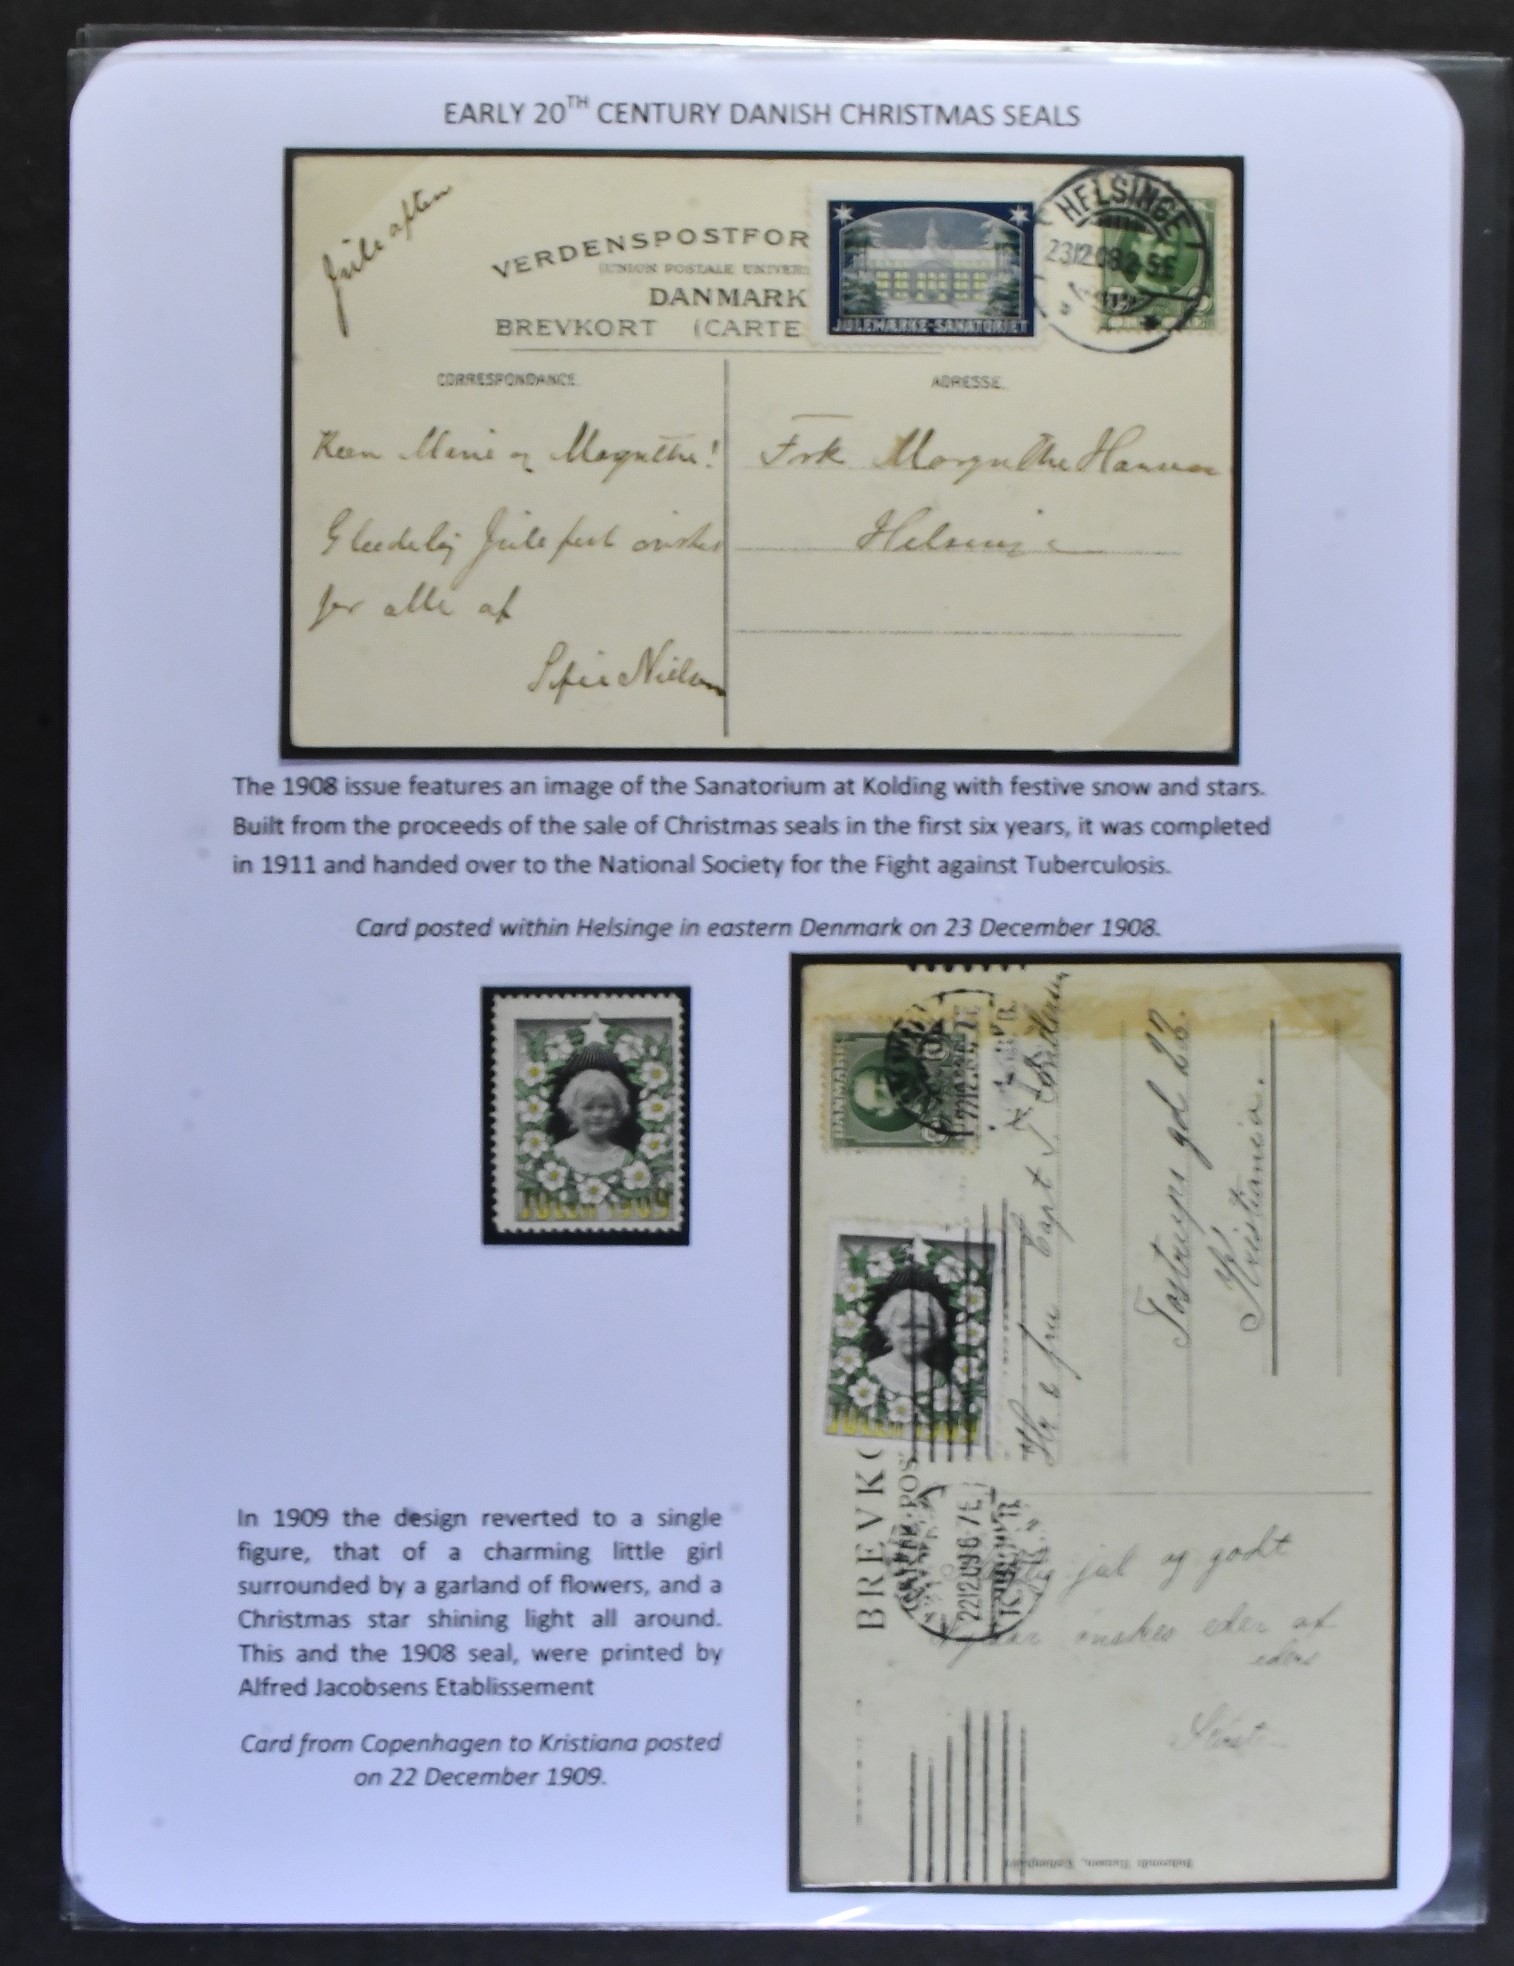 EARLY 20TH CENTURY DANISH CHRISTMAS SEALS
Jule aften
VERDENSPOSTFOR
(UNION POSTALE UNIVER
DANMARK
BREVKORT (CARTE
JULEMÆRKE-SANATORIET
HELSINGE
23.12.08
CORRESPONDANCE.
ADRESSE.
Kære Marie og Magrethe!
Glædelig Julefest ønskes
for alle af
Sofie Nielsen
Frk Margrethe Hansen
Helsinge
The 1908 issue features an image of the Sanatorium at Kolding with festive snow and stars.
Built from the proceeds of the sale of Christmas seals in the first six years, it was completed
in 1911 and handed over to the National Society for the Fight against Tuberculosis.
Card posted within Helsinge in eastern Denmark on 23 December 1908.
JULEN 1909
DANMARK
Hr & fru Capt
Kristiania.
JULEN 1909
BREVKO
2212.09 6-7E
jul og godt
ønskes eder af
eders
In 1909 the design reverted to a single
figure, that of a charming little girl
surrounded by a garland of flowers, and a
Christmas star shining light all around.
This and the 1908 seal, were printed by
Alfred Jacobsens Etablissement
Card from Copenhagen to Kristiana posted
on 22 December 1909.